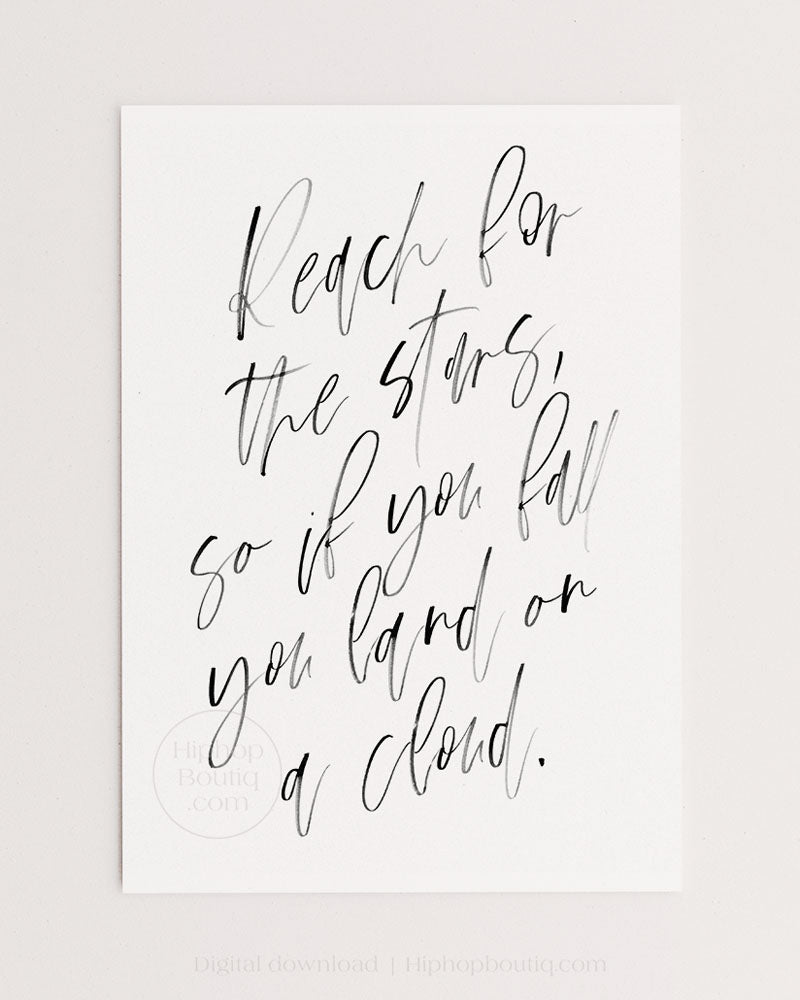 Reach for
the stars,
so if you fall
you land on
a cloud.
Hiphop
Boutiq
.com
Digital download | Hiphopboutiq.com